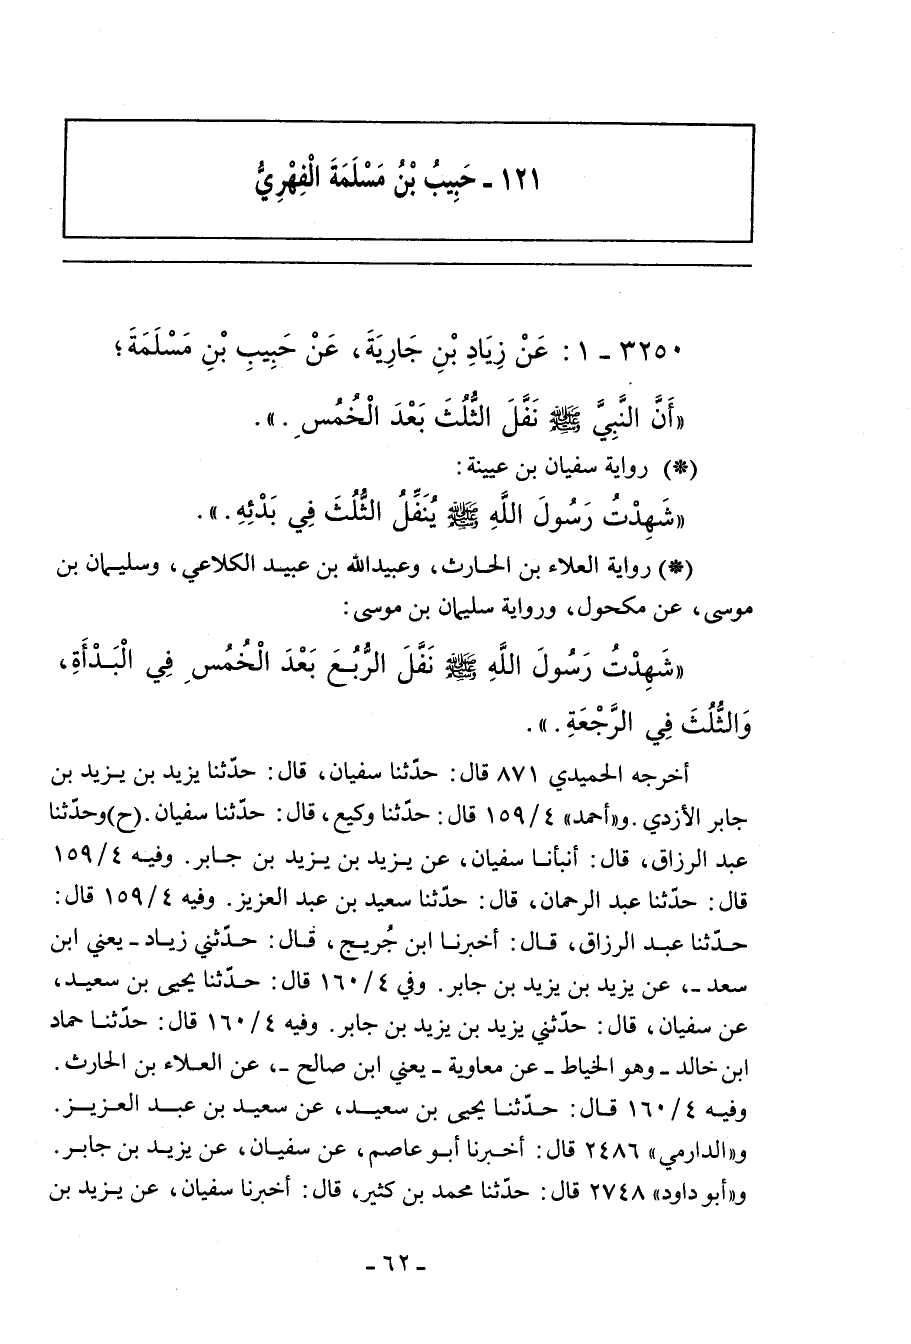 ١٢١ - حَبِيبُ بْنُ مَسْلَمَةَ الْفِهْرِيُّ
٣٢٥٠ - ١ : عَنْ زِيَادِ بْنِ جَارِيَةَ، عَنْ حَبِيبِ بْنِ مَسْلَمَةَ؛
«أَنَّ النَّبِيَّ ﷺ نَفَّلَ الثُّلُثَ بَعْدَ الْخُمُسِ .».
(*) رواية سفيان بن عيينة :
«شَهِدْتُ رَسُولَ اللَّهِ ﷺ يُنَفِّلُ الثُّلُثَ فِي بَدْئِهِ .».
(*) رواية العلاء بن الحارث، وعبيدالله بن عبيد الكلاعي، وسليمان بن
موسى، عن مكحول، ورواية سليمان بن موسى :
«شَهِدْتُ رَسُولَ اللَّهِ ﷺ نَفَّلَ الرُّبُعَ بَعْدَ الْخُمُسِ فِي الْبَدْأَةِ،
وَالثُّلُثَ فِي الرَّجْعَةِ .».
أخرجه الحميدي ٨٧١ قال : حدّثنا سفيان، قال : حدّثنا يزيد بن يزيد بن
جابر الأزدي . و«أحمد» ١٥٩/٤ قال : حدّثنا وكيع، قال : حدّثنا سفيان . (ح)وحدّثنا
عبد الرزاق، قال : أنبأنا سفيان، عن يزيد بن يزيد بن جابر. وفيه ١٥٩/٤
قال : حدّثنا عبد الرحمان، قال : حدّثنا سعيد بن عبد العزيز. وفيه ١٥٩/٤ قال :
حدّثنا عبد الرزاق، قال : أخبرنا ابن جُريج، قال : حدّثني زياد - يعني ابن
سعد -، عن يزيد بن يزيد بن جابر. وفي ١٦٠/٤ قال : حدّثنا يحيى بن سعيد،
عن سفيان، قال : حدّثني يزيد بن يزيد بن جابر. وفيه ١٦٠/٤ قال : حدّثنا حماد
ابن خالد - وهو الخياط - عن معاوية - يعني ابن صالح -، عن العلاء بن الحارث.
وفيه ١٦٠/٤ قال : حدّثنا يحيى بن سعيد، عن سعيد بن عبد العزيز.
و«الدارمي» ٢٤٨٦ قال : أخبرنا أبو عاصم، عن سفيان، عن يزيد بن جابر.
و«أبو داود» ٢٧٤٨ قال : حدّثنا محمد بن كثير، قال : أخبرنا سفيان، عن يزيد بن
- ٦٢ -